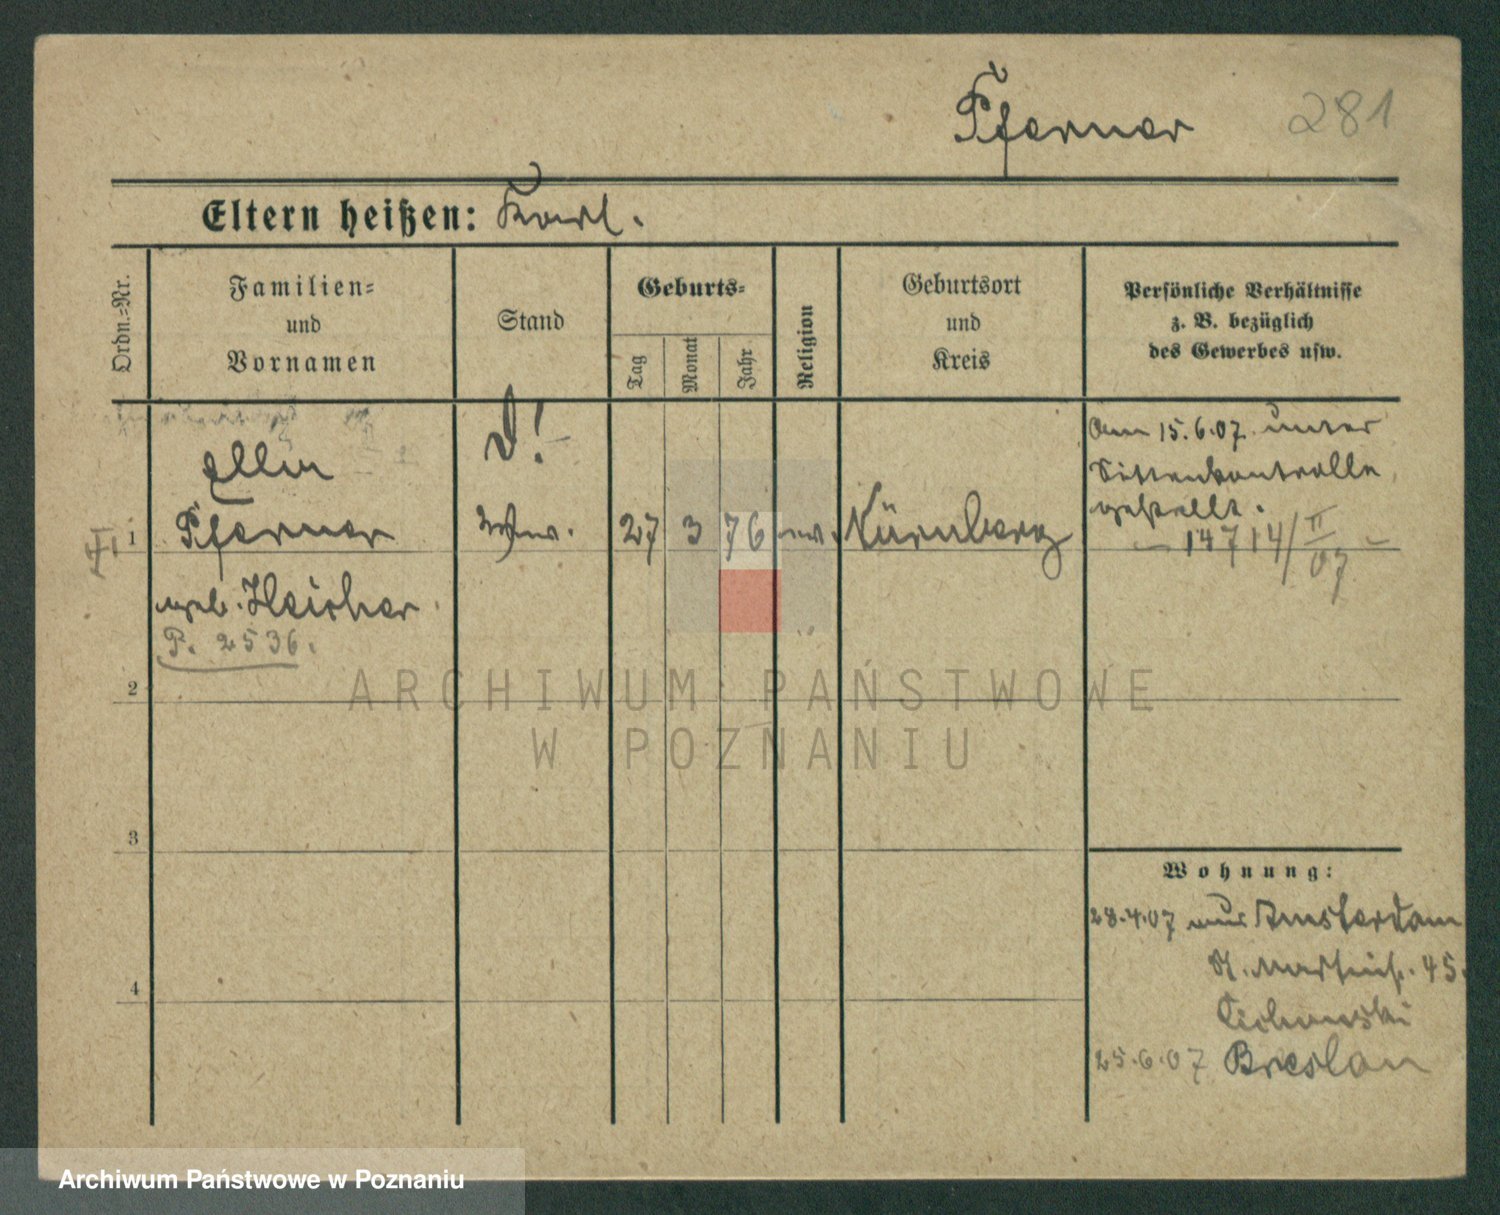 Pfarner 281
Eltern heißen: Karl.
Ordn.-Nr.
Familien-
und
Vornamen
Stand
Geburts-
Tag
Monat
Jahr
Religion
Geburtsort
und
Kreis
Persönliche Verhältnisse
z. B. bezüglich
des Gewerbes usw.
D!
Am 15.6.07. unter
Sittenkontrolle
gestellt.
1 Pfarner 27 3 76 Nürnberg
14714/II 07
geb. Heicher
P. 2536.
2
3
4
Wohnung:
28.4.07 aus Amsterdam
St. Martinstr. 45.
Cichowski
25.6.07 Breslau
ARCHIWUM PAŃSTWOWE
W POZNANIU
Archiwum Państwowe w Poznaniu